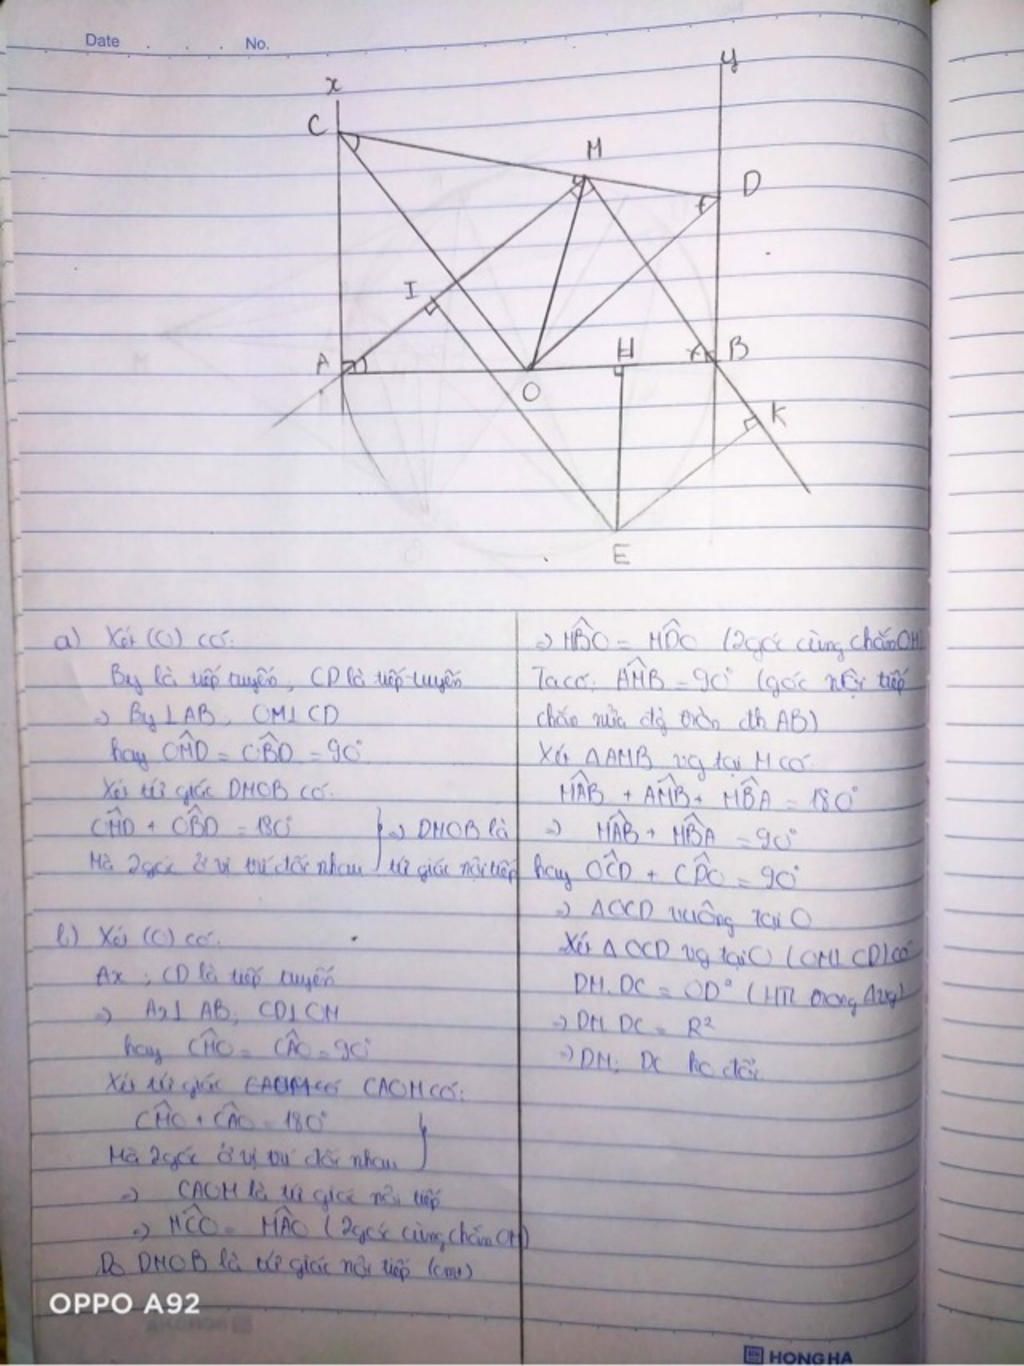 Date . . . No.
x
y
C
M
D
I
A
H
B
O
K
E
a) Xét (O) có:
By là tiếp tuyến, CD là tiếp tuyến
⇒ By ⊥ AB, OM ⊥ CD
hay OM̂D = OB̂D = 90°
Xét tứ giác DMOB có:
OM̂D + OB̂D = 180°
Mà 2 góc ở vị trí đối nhau
⇒ DMOB là
tứ giác nội tiếp
b) Xét (O) có:
Ax, CD là tiếp tuyến
⇒ Ax ⊥ AB, CD ⊥ OM
hay CM̂O = CÂO = 90°
Xét tứ giác CAOM có:
CM̂O + CÂO = 180°
Mà 2 góc ở vị trí đối nhau
⇒ CAOM là tứ giác nội tiếp
⇒ MĈO = MÂO (2 góc cùng chắn OM)
Do DMOB là tứ giác nội tiếp (cmt)
⇒ MB̂O = MD̂O (2 góc cùng chắn OM)
Ta có: AM̂B = 90° (góc nội tiếp
chắn nửa đg tròn đk AB)
Xét ΔAMB vg tại M có:
MÂB + AM̂B + MB̂A = 180°
⇒ MÂB + MB̂A = 90°
hay OĈD + CD̂O = 90°
⇒ ΔOCD vuông tại O
Xét ΔOCD vg tại O (OM ⊥ CD) có
DM. DC = OD² (HTL trong Δvg)
⇒ DM. DC = R²
⇒ DM. DC ko đổi
OPPO A92
HONG HA